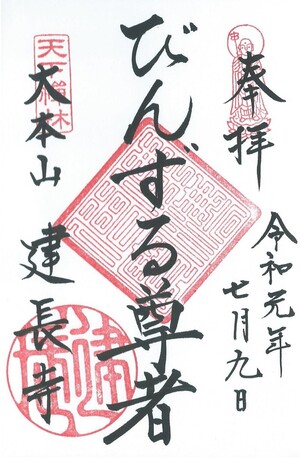 奉拝
令和元年
七月九日
びんずる尊者
大本山 建長寺